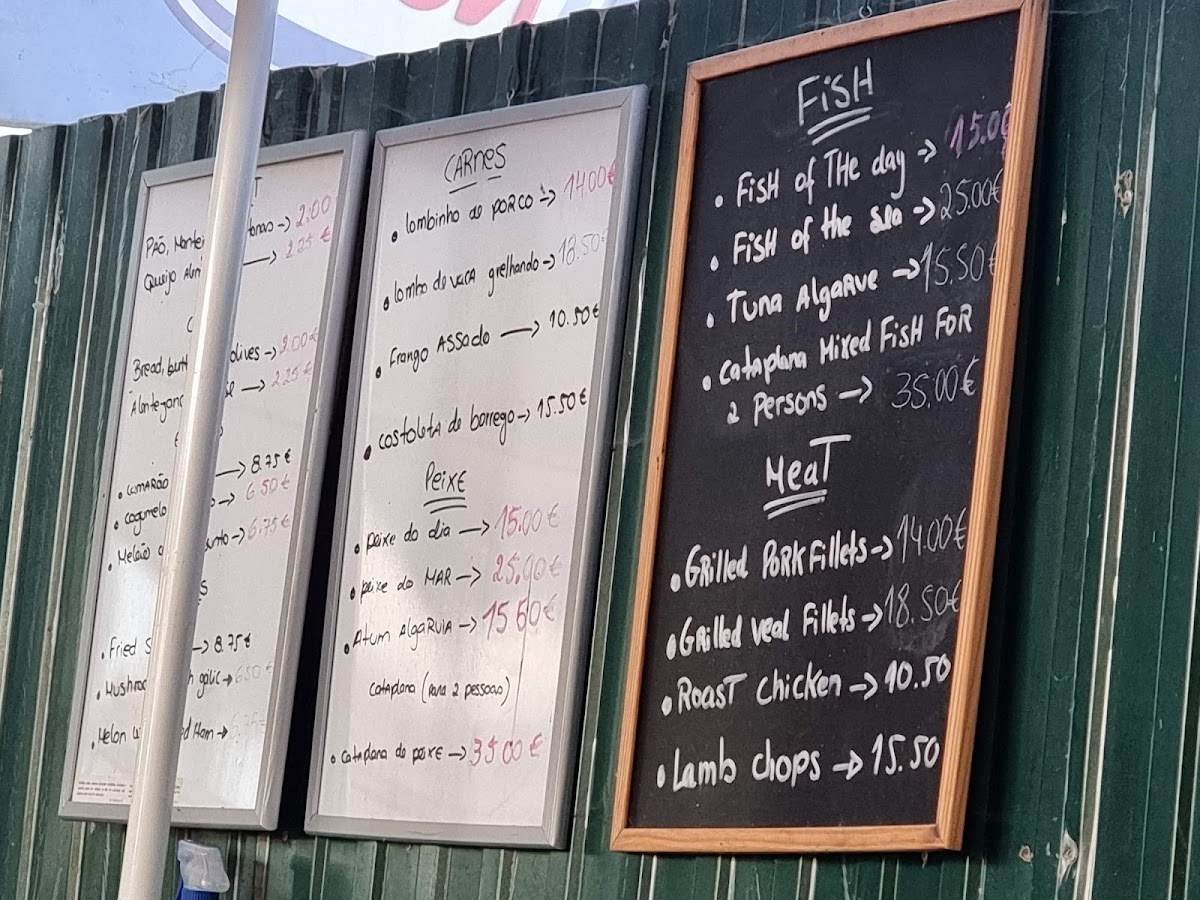 T
PAÕ, Mantei onas → 2.00
Queijo Alen → 2.25 €
Bread, butt olives → 2.00€
Alentejano se → 2.25 €
• CAMARÃO → 8.75 €
• cogumelo o → 6.50 €
• Melão unto → 6.75 €
S
• Fried S → 8.75€
• Mushroo h galic → 6.50
• Melon w ed Ham →
CARNES
• lombinho de PORCO → 14.00€
• lombo de VACA grelhando → 18.50€
• Frango ASSADO → 10.50€
• costoleta de borrego → 15.50€
Peixe
• peixe do dia → 15.00€
• peixe do MAR → 25.00€
• Atum AlgaRViA → 15 50€
CATAplANA (PARA 2 pessoas)
• CATAplANA de peixe → 35 00 €
FisH
• FisH of THe day → 15.00
• FisH of the sea → 25.00€
• Tuna AlgaRve → 15.50€
• CATAplana Mixed FisH FOR
2 persons → 35.00€
MeaT
• GRilled PORK Fillets → 14.00€
• GRilled veal Fillets → 18.50€
• RoasT chicken → 10.50
• Lamb chops → 15.50